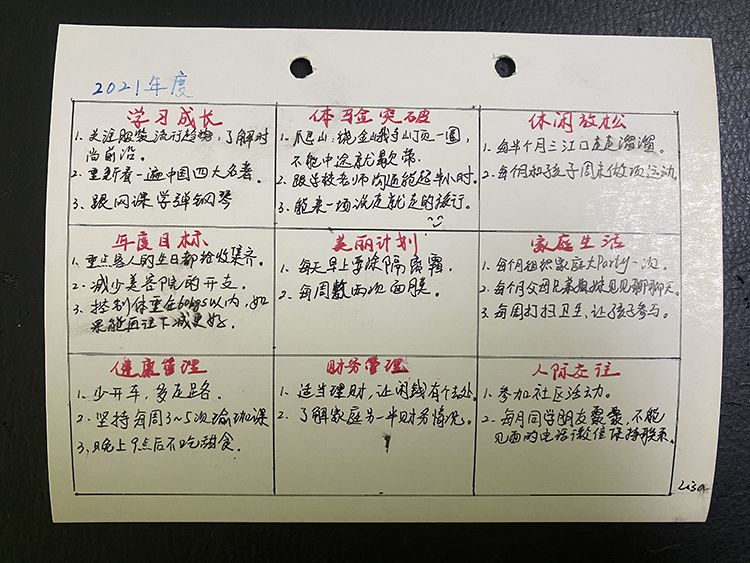 2021年度
学习成长
1. 关注服装流行趋势,了解时
尚前沿。
2. 重新看一遍中国四大名著。
3. 跟网课学弹钢琴
体验突破
1. 爬山:绕金峨寺山顶一圈,
不能中途就歇菜.
2. 跟学校老师沟通能超半小时.
3. 能来一场说走就走的旅行。
休闲放松
1. 每半个月三江口走走溜溜。
2. 每个月和孩子周末做项运动。
年度目标
1. 重点客人的生日都给收集齐。
2. 减少美容院的开支。
3. 控制体重在60kgs以内,如
果能再往下减更好。
美丽计划
1. 每天早上要涂隔离霜
2. 每周敷两次面膜。
家庭生活
1. 每个月组织家庭大Party一次
2. 每个月父母兄弟姐妹见见聊聊天。
3. 每周打扫卫生,让孩子参与。
健康管理
1. 少开车,多走路。
2. 坚持每周3~5次瑜珈课
3. 晚上9点后不吃甜食.
财务管理
1. 适当理财,让闲钱有个去处
2. 了解家庭另一半财务情况。
人际交往
1. 参加社区活动。
2. 每月同学朋友聚聚,不能
见面的电话微信保持联系。
Lisa